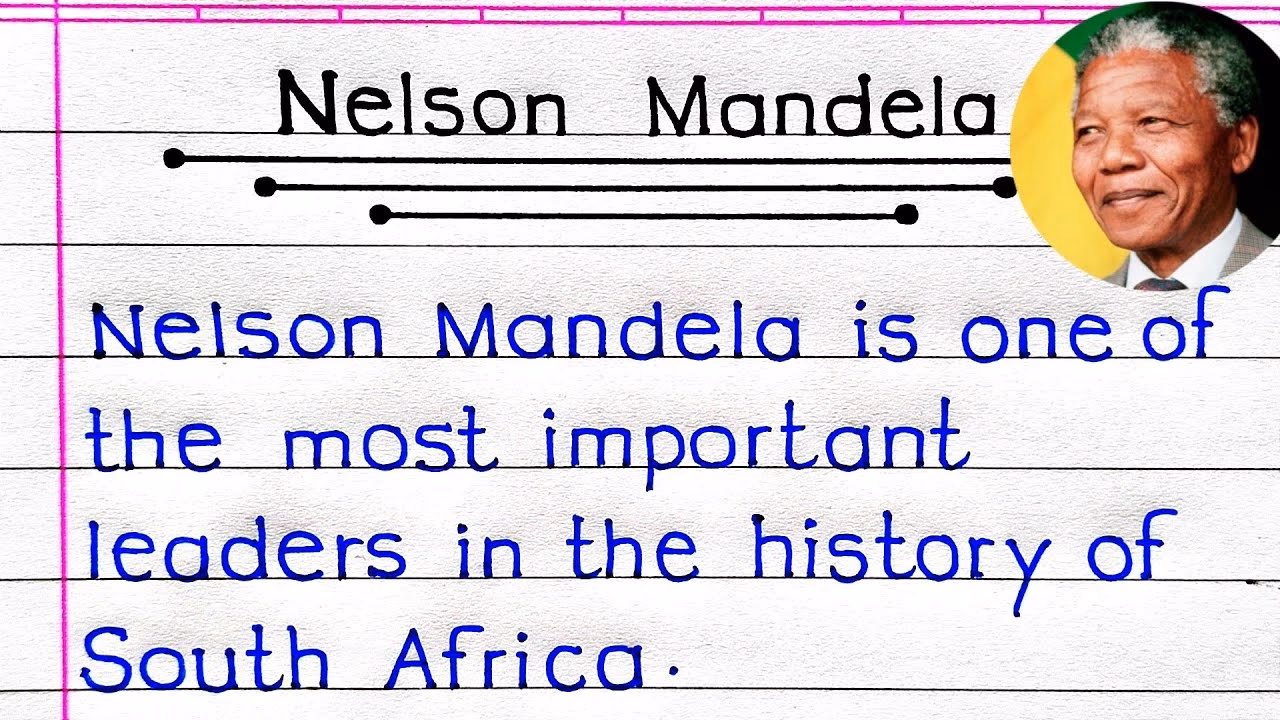 Nelson Mandela
Nelson Mandela is one of
the most important
leaders in the history of
South Africa.